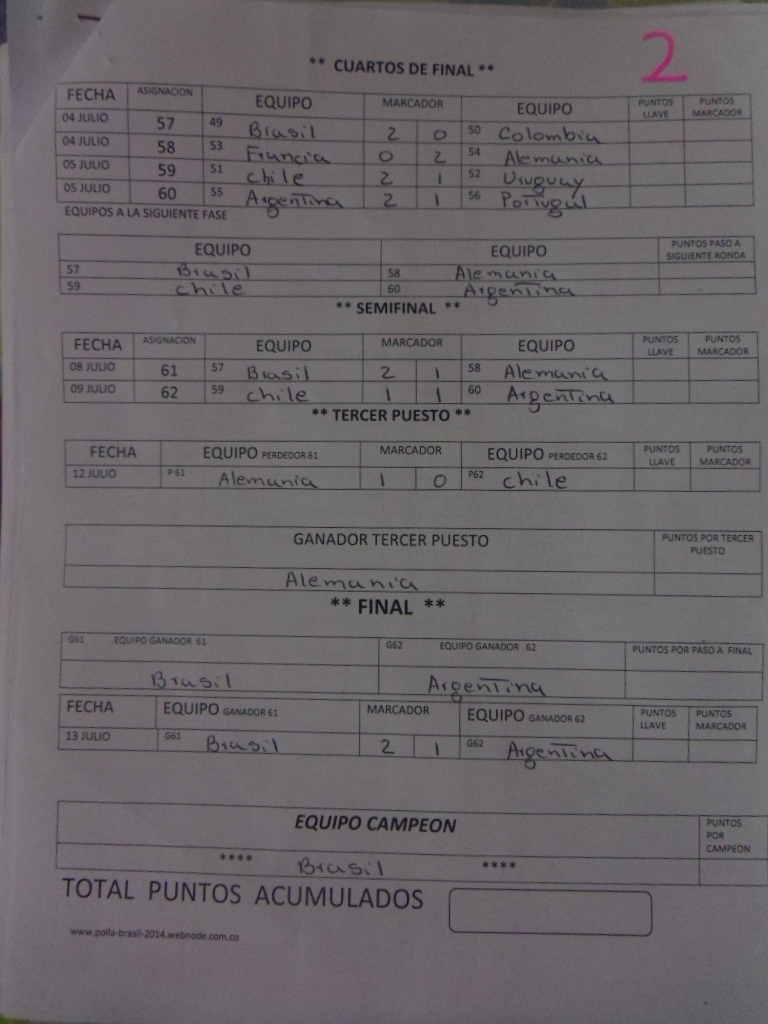 2
** CUARTOS DE FINAL **
FECHA ASIGNACION EQUIPO MARCADOR EQUIPO PUNTOS LLAVE PUNTOS MARCADOR
04 JULIO 57 49 Brasil 2 0 50 Colombia
04 JULIO 58 53 Francia 0 2 54 Alemania
05 JULIO 59 51 chile 2 1 52 Uruguay
05 JULIO 60 55 Argentina 2 1 56 Portugal
EQUIPOS A LA SIGUIENTE FASE
EQUIPO EQUIPO PUNTOS PASO A SIGUIENTE RONDA
57 Brasil 58 Alemania
59 chile 60 Argentina
** SEMIFINAL **
FECHA ASIGNACION EQUIPO MARCADOR EQUIPO PUNTOS LLAVE PUNTOS MARCADOR
08 JULIO 61 57 Brasil 2 1 58 Alemania
09 JULIO 62 59 chile 1 1 60 Argentina
** TERCER PUESTO **
FECHA EQUIPO PERDEDOR 61 MARCADOR EQUIPO PERDEDOR 62 PUNTOS LLAVE PUNTOS MARCADOR
12 JULIO P 61 Alemania 1 0 P62 chile
GANADOR TERCER PUESTO PUNTOS POR TERCER PUESTO
Alemania
** FINAL **
G61 EQUIPO GANADOR 61 G62 EQUIPO GANADOR 62 PUNTOS POR PASO A FINAL
Brasil Argentina
FECHA EQUIPO GANADOR 61 MARCADOR EQUIPO GANADOR 62 PUNTOS LLAVE PUNTOS MARCADOR
13 JULIO G61 Brasil 2 1 G62 Argentina
EQUIPO CAMPEON PUNTOS POR CAMPEON
**** Brasil ****
TOTAL PUNTOS ACUMULADOS
www.polla-brasil-2014.webnode.com.co